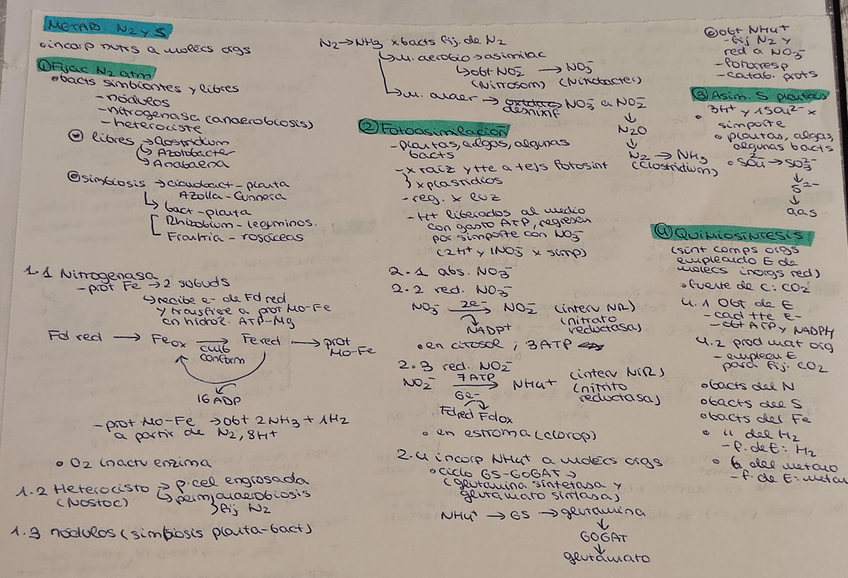 METAB. N2 y S
• incorp nutrs a molécs orgs
① Fijac N2 atm
• bacts simbiontes y libres
- nódulos
- nitrogenasa (anaerobiosis)
- heterociste
libres → Clostridium
↳ Azotobacter
↳ Anabaena
simbiosis → cianobact - planta
Azolla - Gunnera
↳ bact - planta
Rhizobium - leguminos.
Frankia - rosáceas
1.1 Nitrogenasa
- prot Fe → 2 subuds
↳ recibe e- de Fd red
y transfiere a prot Mo-Fe
en hidról. ATP-Mg
Fd red → Fe ox → Fe red → prot Mo-Fe
camb conform
16 ADP
- prot Mo-Fe → obt 2NH3 + 1H2
a partir de N2, 8H+
• O2 inactiv enzima
1.2 Heterocisto → p. cel engrosada
(Nostoc) ↳ perm anaerobiosis
↳ fij N2
1.3 nódulos (simbiosis planta-bact)
N2 → NH3 x bacts fij. de N2
↳ m. aerobio → asimilac
↳ obt NO2- → NO3-
(Nitrosom) (Nitrobacter)
↳ m. anaer → desnitrif NO3- a NO2-
↓
N2O
↓
N2 → NH3
(Clostridium)
② Fotoasimilación
- plantas, algas, algunas
bacts
- x raíz y tte a tejs fotosint
} x plastidios
- reg. x luz
- H+ liberados al medio
con gasto ATP, regresan
por simporte con NO3-
(2H+ y 1NO3- x simp)
2.1 abs. NO3-
2.2 red. NO3-
NO3- 2e- → NO2- (interv NR)
NADP+ (nitrato
reductasa)
• en citosol ; 3ATP
2.3 red. NO2-
NO2- 7 ATP → NH4+ (interv NiR)
6e- (nitrito
reductasa)
Fdred Fdox
• en estroma (clorop)
2.4 incorp NH4+ a molécs orgs
• ciclo GS-GOGAT →
(glutamina sintetasa y
glutamato sintasa)
NH4+ → GS → glutamina
↓
GOGAT
↓
glutamato
obt NH4+
- fij N2 y
red a NO3-
- fotoresp
- catab. prots
③ Asim. S plantas
• 3H+ y 1SO42- x
simporte
• plantas, algas,
algunas bacts
• SO42- → SO32-
↓
S2-
↓
aas
④ QUIMIOSÍNTESIS
(sínt comps orgs
empleando E de
molécs inorgs red)
• fuente de C: CO2
4.1 Obt de E
- cad tte e-
- obt ATP y NADPH
4.2 prod mat org
- emplean E
para fij. CO2
• bacts del N
• bacts del S
• bacts del Fe
• " del H2
- f. de E: H2
• b del metano
- f. de E: